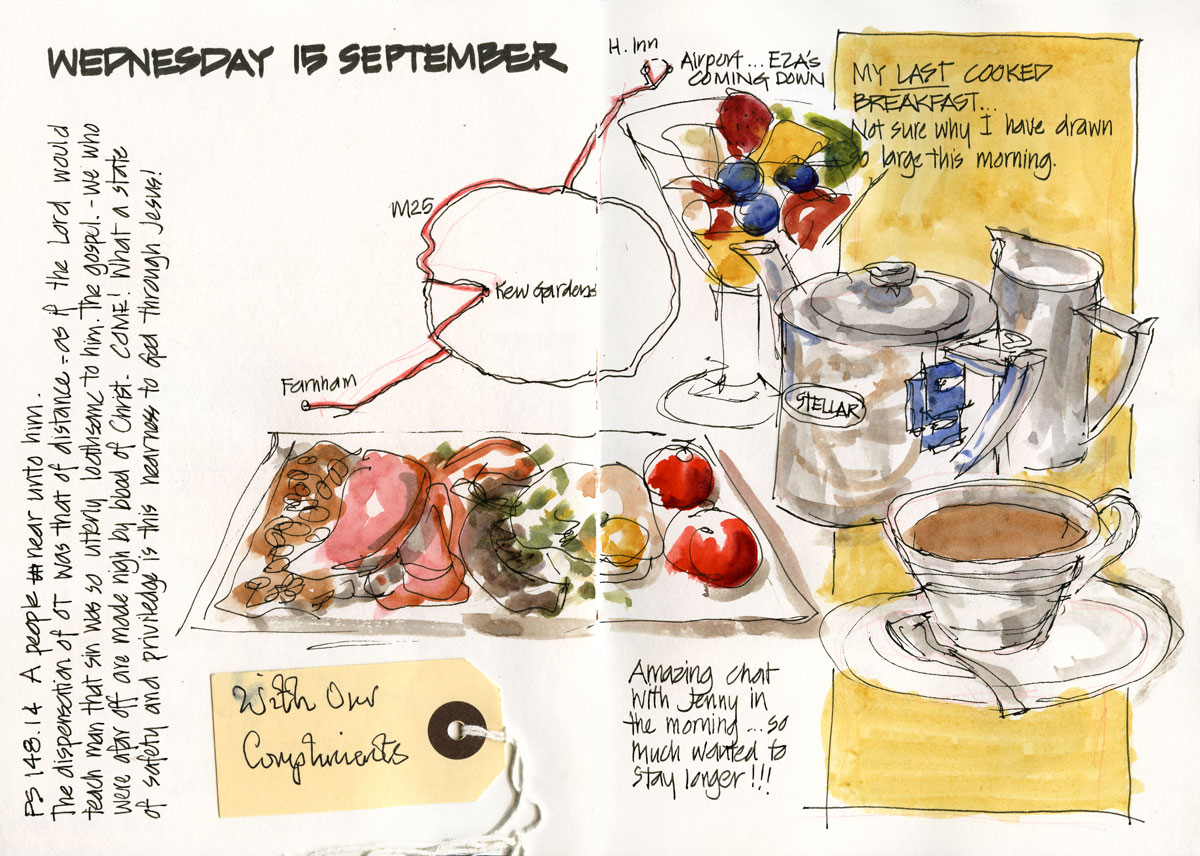 WEDNESDAY 15 SEPTEMBER
H. Inn
Airport... EZA'S
COMING DOWN
MY LAST COOKED
BREAKFAST...
Not sure why I have drawn
so large this morning.
M25
Kew Gardens
Farnham
STELLAR
PS 148.14 A people near unto him.
The dispensation of OT was that of distance - as if the Lord would
teach man that sin was so utterly loathsome to him. The gospel. - we who
were afar off are made nigh by blood of Christ. COME! What a state
of safety and priviledge is this nearness to God through Jesus!
With Our
Compliments
Amazing chat
with Jenny in
the morning... so
much wanted to
stay longer!!!